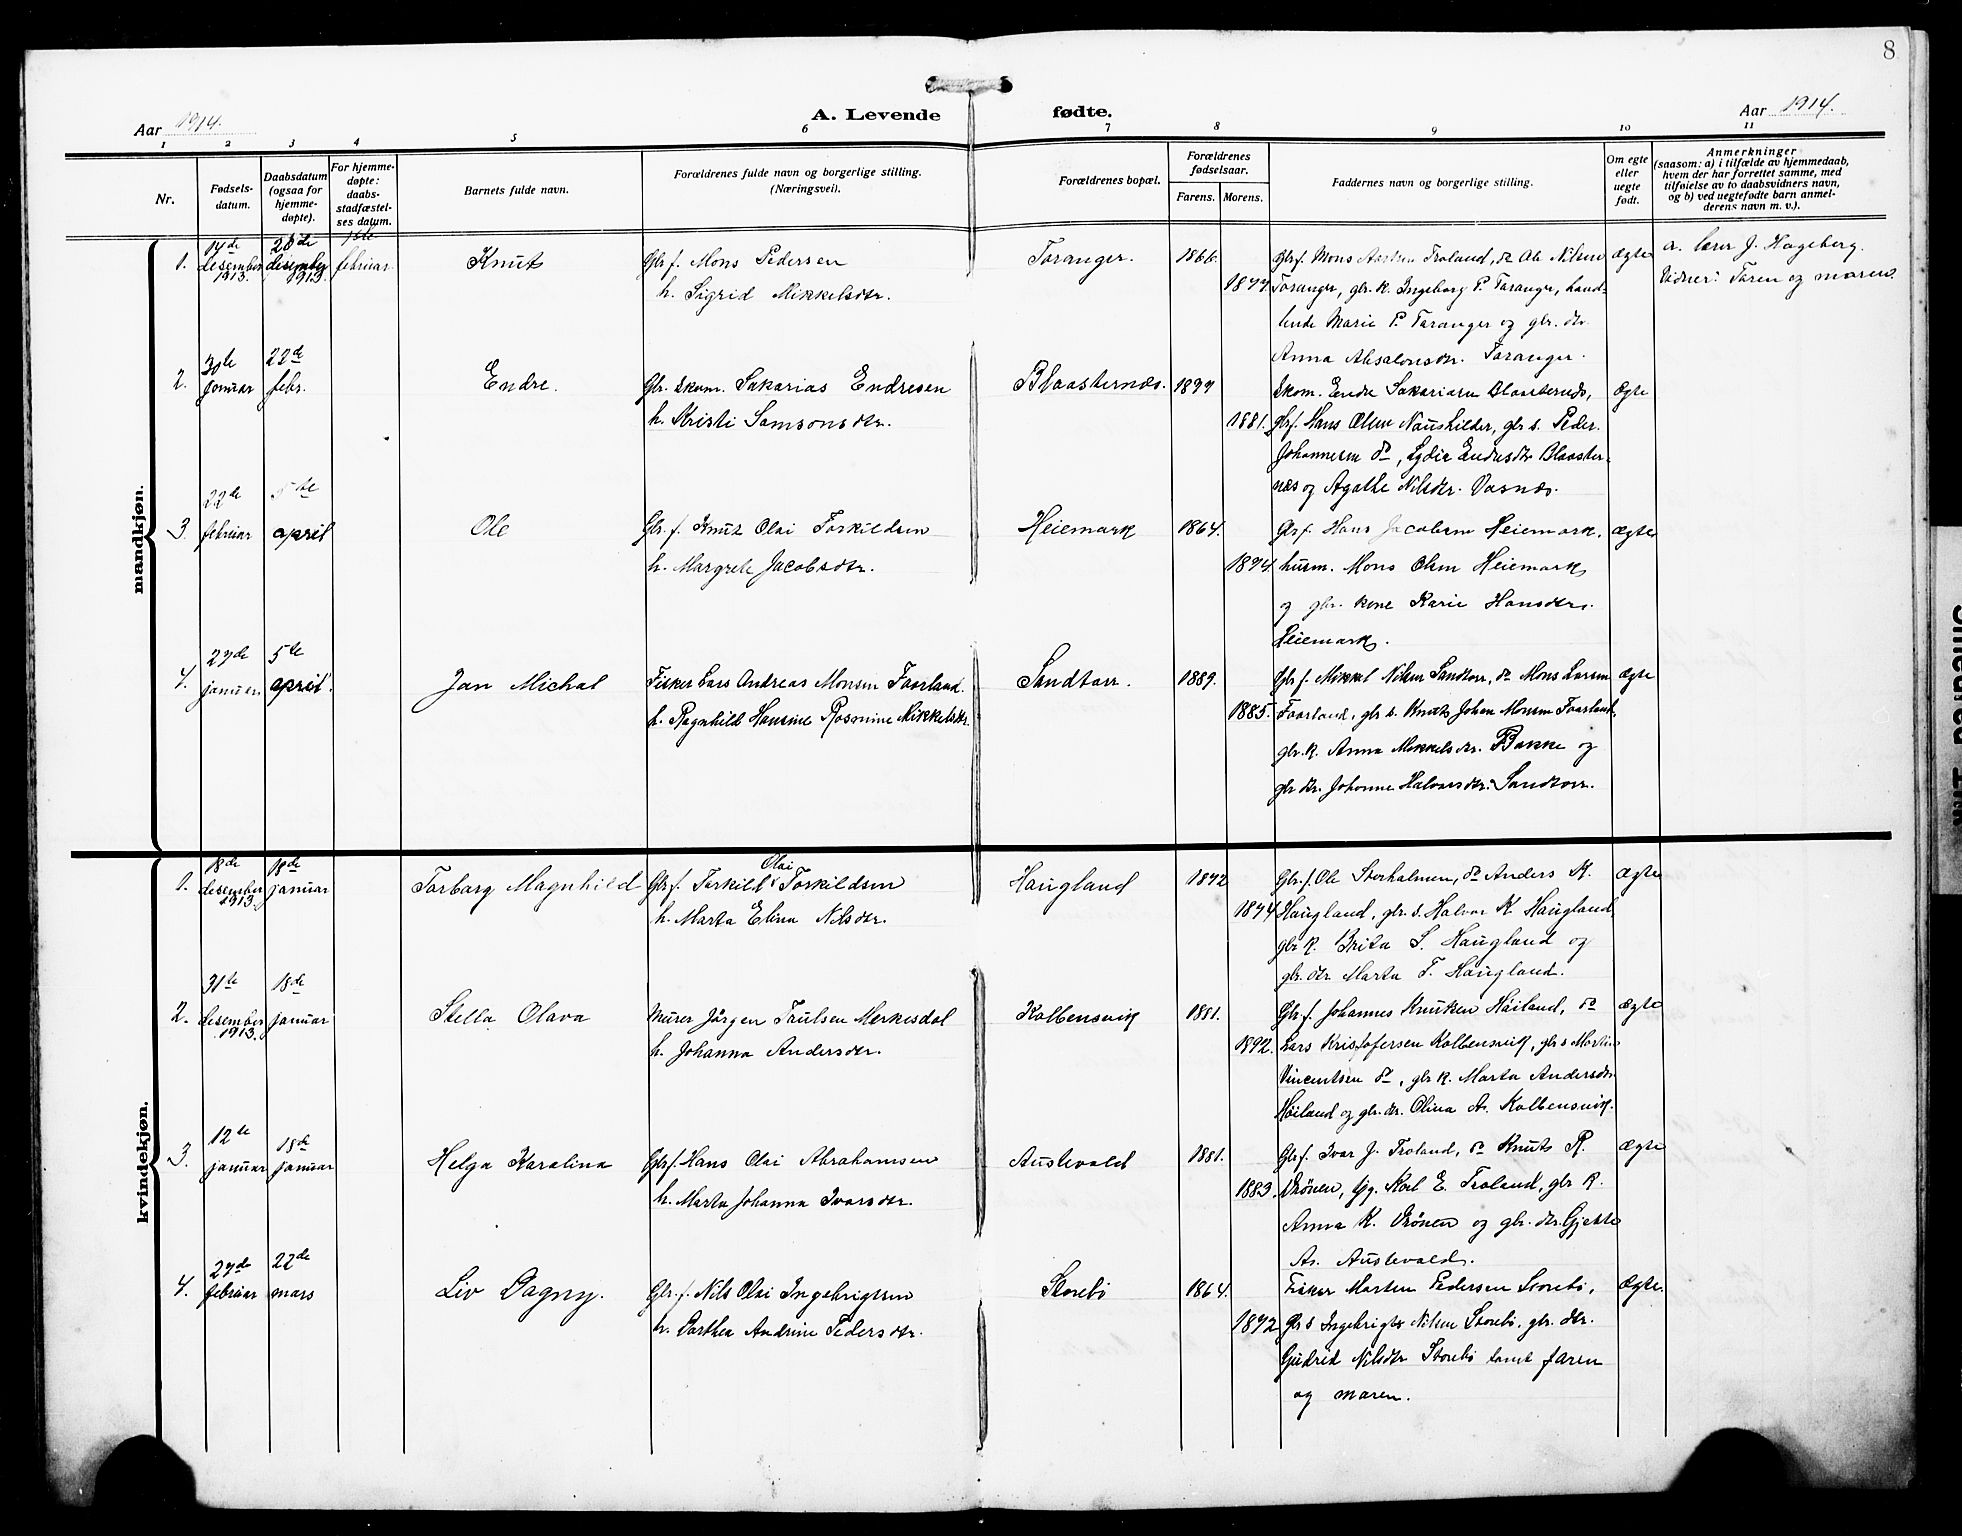 8
Aar 1914.
A. Levende fødte.
Aar 1914.
1 2 3 4 5 6 7 8 9 10 11
Nr.
Fødsels-
datum.
Daabsdatum
(ogsaa for
hjemme-
døpte).
For hjemme-
døpte:
daabs-
stadfæstel-
ses datum.
Barnets fulde navn.
Forældrenes fulde navn og borgerlige stilling.
(Næringsvei).
Forældrenes bopæl.
Forældrenes
fødselsaar.
Farens. Morens.
Faddernes navn og borgerlige stilling.
Om egte
eller
uegte
født.
Anmerkninger
(saasom: a) i tilfælde av hjemmedaab,
hvem der har forrettet samme, med
tilføielse av to daabsvidners navn,
og b) ved uegtefødte barn anmel-
derens navn m. v.).
mandkjøn.
1.
14de
desember
1913.
28de
desember
1913.
1ste
februar
Knut
Gbr f. Mons Pedersen
h. Sigrid Mikkelsdtr.
Toranger.
1866.
1877
Gbrf. Mons Troland, do Ole Nilsen
Toranger, gbr. k. Ingeborg P. Toranger, hand-
lende Marie P. Toranger og gbr. dtr.
Anna Absalonsdtr. Toranger.
Ægte
a. lærer J. Hageberg.
Vidner: Faren og moren.
2.
30te
januar
22de
febr.
Endre.
Gbr. skom. Sakarias Endresen
h. Kristi Samsonsdtr.
Blaasternæs.
1877
1881.
Skom. Endre Sakariasen Blaasternæs,
gbrf. Hans Olsen Naushilder, gbr s. Peder
Johannesen do, Lydia Endresdtr Blaaster-
næs og Agathe Nilsdtr. Vasnæs.
Ægte
3.
22de
februar
5te
april
Ole
Gbr. f. Knut Olai Torkildsen
h. Margrete Jacobsdtr.
Heiemark
1864.
1874
Gbrf. Hans Jacobsen Heiemark,
husm. Mons Olsen Heiemark
og gbr. kone Karie Hansdtr.
Heiemark.
Ægte
4.
27de
januar
5te
april
Jan Michal
Fisker Lars Andreas Monsen Faarland.
h. Ragnhild Hansine Rosmine Mikkelsdtr.
Sandtorr.
1889.
1885.
Gbr f. Mikkel Nilsen Sandtorr, do Mons Larsen
Faarland, gbr s. Knut Johan Monsen Faarland,
gbr. k. Anna Mikkelsdtr. Bakke og
gbr dtr. Johanne Halvorsdtr. Sandtorr.
Ægte
kvindekjøn.
1.
18de
desember
1913.
18de
januar
Torborg Magnhild
Olai
Gbrf. Torkild Torkildsen
h. Marta Elina Nilsdtr.
Haugland
1872
1874
Gbr. f. Ole Storholmen, do Anders K.
Haugland, gbr. s. Halvor K. Haugland
gbr k. Brita S. Haugland og
gbr. dtr Marta T. Haugland.
Ægte
2.
31te
desember
1913.
18de
januar
Stella Olava
Murer Jørgen Paulsen Merkesdal
h. Johanna Andersdtr.
Kolbensvik
1881.
1892.
Gbr f. Johannes Knutsen Høiland, do
Lars Kristofersen Kolbensvik, gbr s Martin
Vincentsen do, gbr k. Marta Andersdtr
Høiland og gbr. dtr. Olina As. Kolbensvik.
Ægte
3.
12te
januar
18de
januar
Helga Karolina
Gbrf. Hans Olai Abrahamsen
h. Marta Johanna Ivarsdtr.
Austevold
1881.
1883.
Gbrf. Ivar J. Troland, do Knut R.
Drönen, Karl E. Troland, gbr k.
Anna K. Drönen og gbr. dtr. Gjekte
As. Austevold.
Ægte
4.
27de
februar
22de
mars
Liv Dagny.
Gbr. f. Nils Olai Ingebrigtsen
h. Dorthea Andrine Pedersdtr.
Storebø
1864.
1872
Fisker Morten Pedersen Storebø,
Gbr s Ingebrigt Nilsen Storebø, gbr. dtr.
Gudrid Nilsdtr Storebø samt faren
og moren.
Ægte.